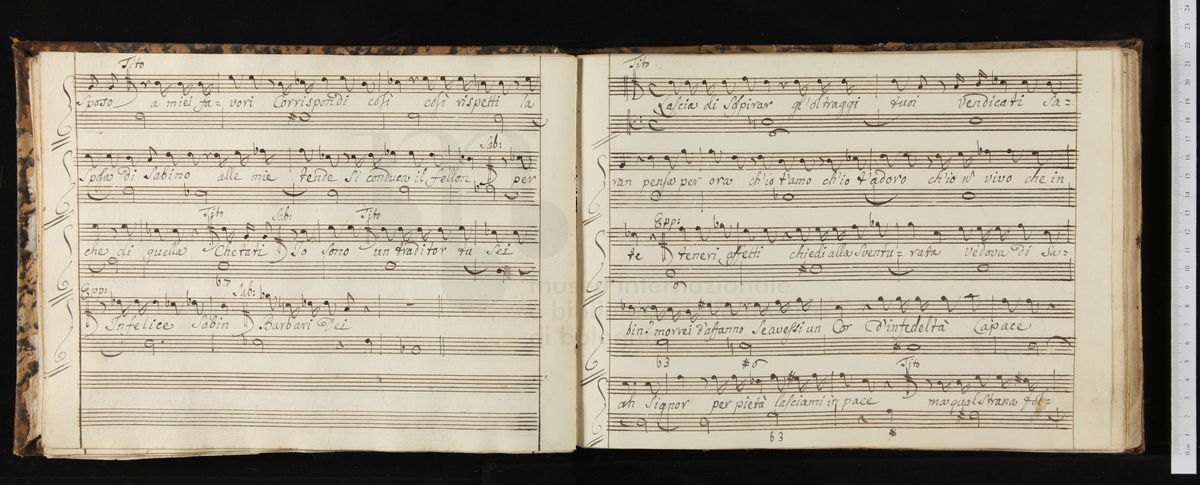 Tito
Sposo a miei fa= vori Corrispondi così così rispetti la
Sab:
Sposa di Sabino alle mie tende Si conduca il fellon per
Tito Sab: Tito
che di quella Chetati Io sono un traditor tu Sei
b7
Epp: Sab:
Infelice Sabin Barbari Dei
Tito
Lascia di Sospirar gl'oltraggi tuoi Vendicati Sa=
6
ran pensa per ora ch'io t'amo ch'io t'adoro ch'io vivo che in
Epp:
te teneri affetti chiedi alla Sventu= rata Vedova di Sa=
bin? morrei d'affanno Se avessi un Cor d'infedeltà Capace
b3 #6
Tito
ah Signor per pietà lasciami in pace ma qual Strana
b3 #
museo internazionale